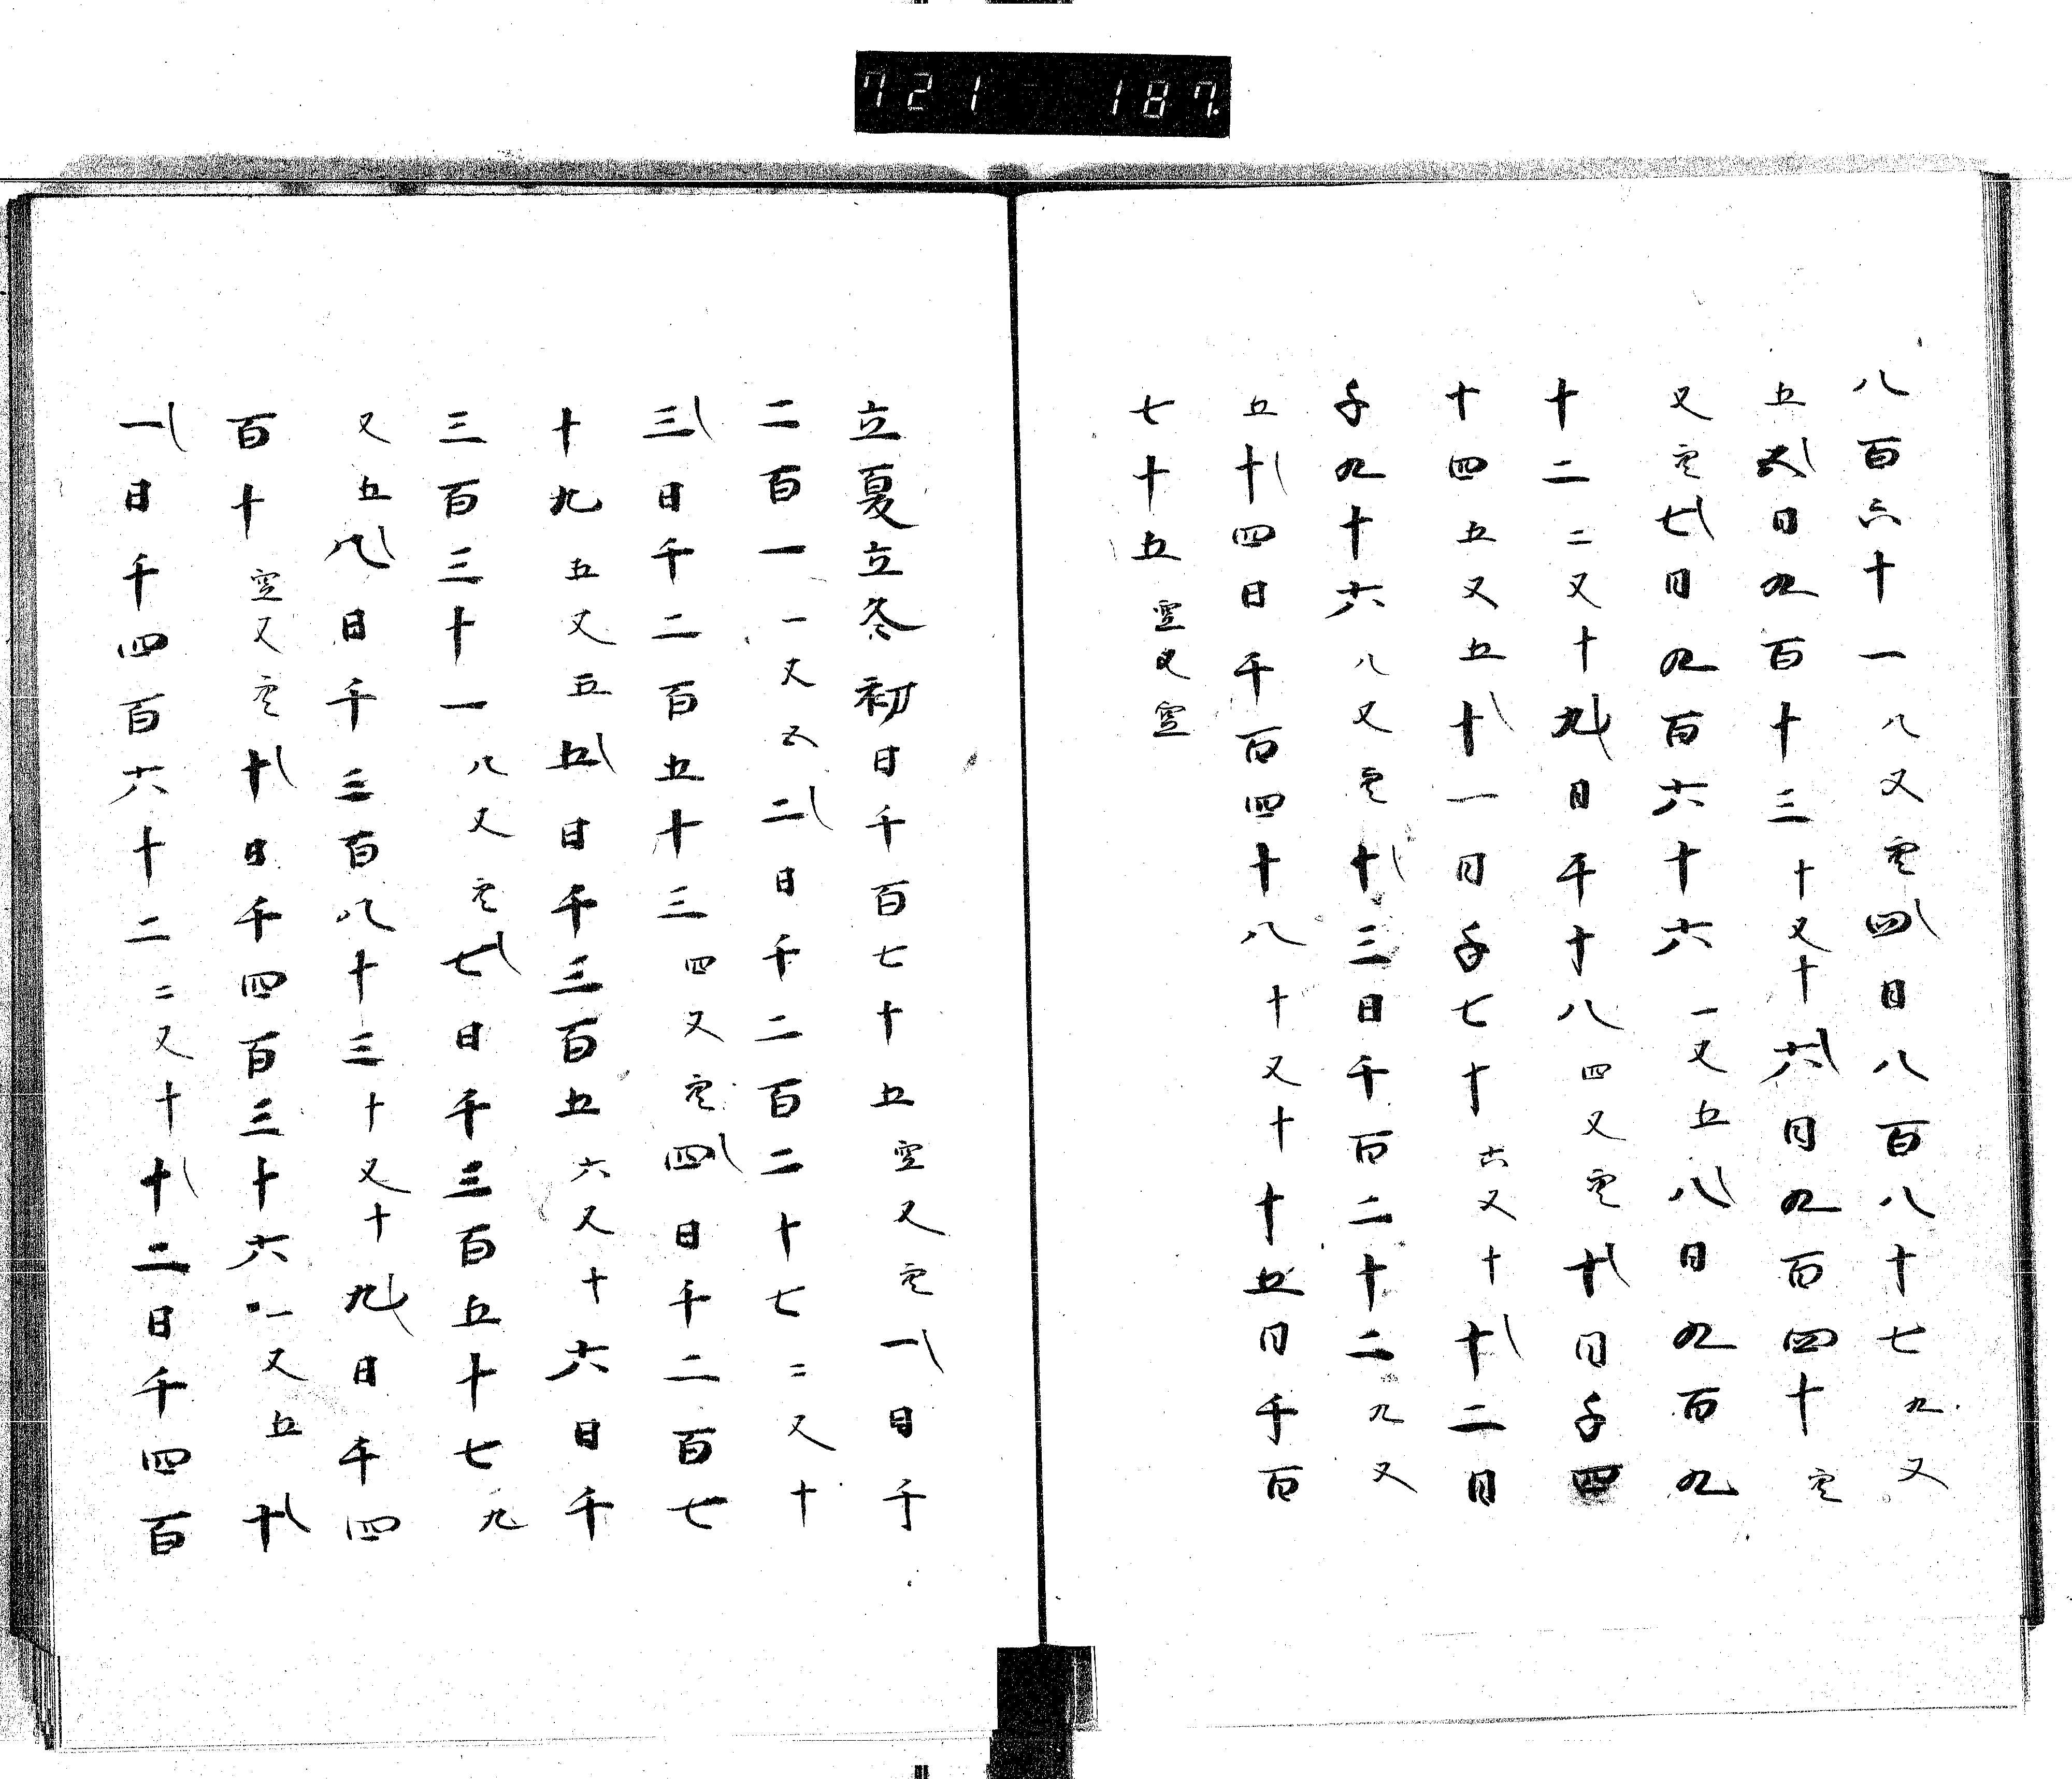 721 187
八百六十一八又空四日八百八十七九又
五五日九百十三十又十六日九百四十空
又空七日九百六十六一又五八日九百九
十二二又十九日千十八四又空十日千四
十四五又五十一日千七十六又十十二日
千九十六八又空十三日千百二十二九又
五十四日千百四十八十又十十五日千百
七十五空又空
立夏立冬初日千百七十五空又空一日千
二百一一又五二日千二百二十七二又十
三日千二百五十三四又空四日千二百七
十九五又五五日千三百五六又十六日千
三百三十一八又空七日千三百五十七九
又五八日千三百八十三十又十九日千四
百十空又空十日千四百三十六一又五十
一日千四百六十二二又十十二日千四百